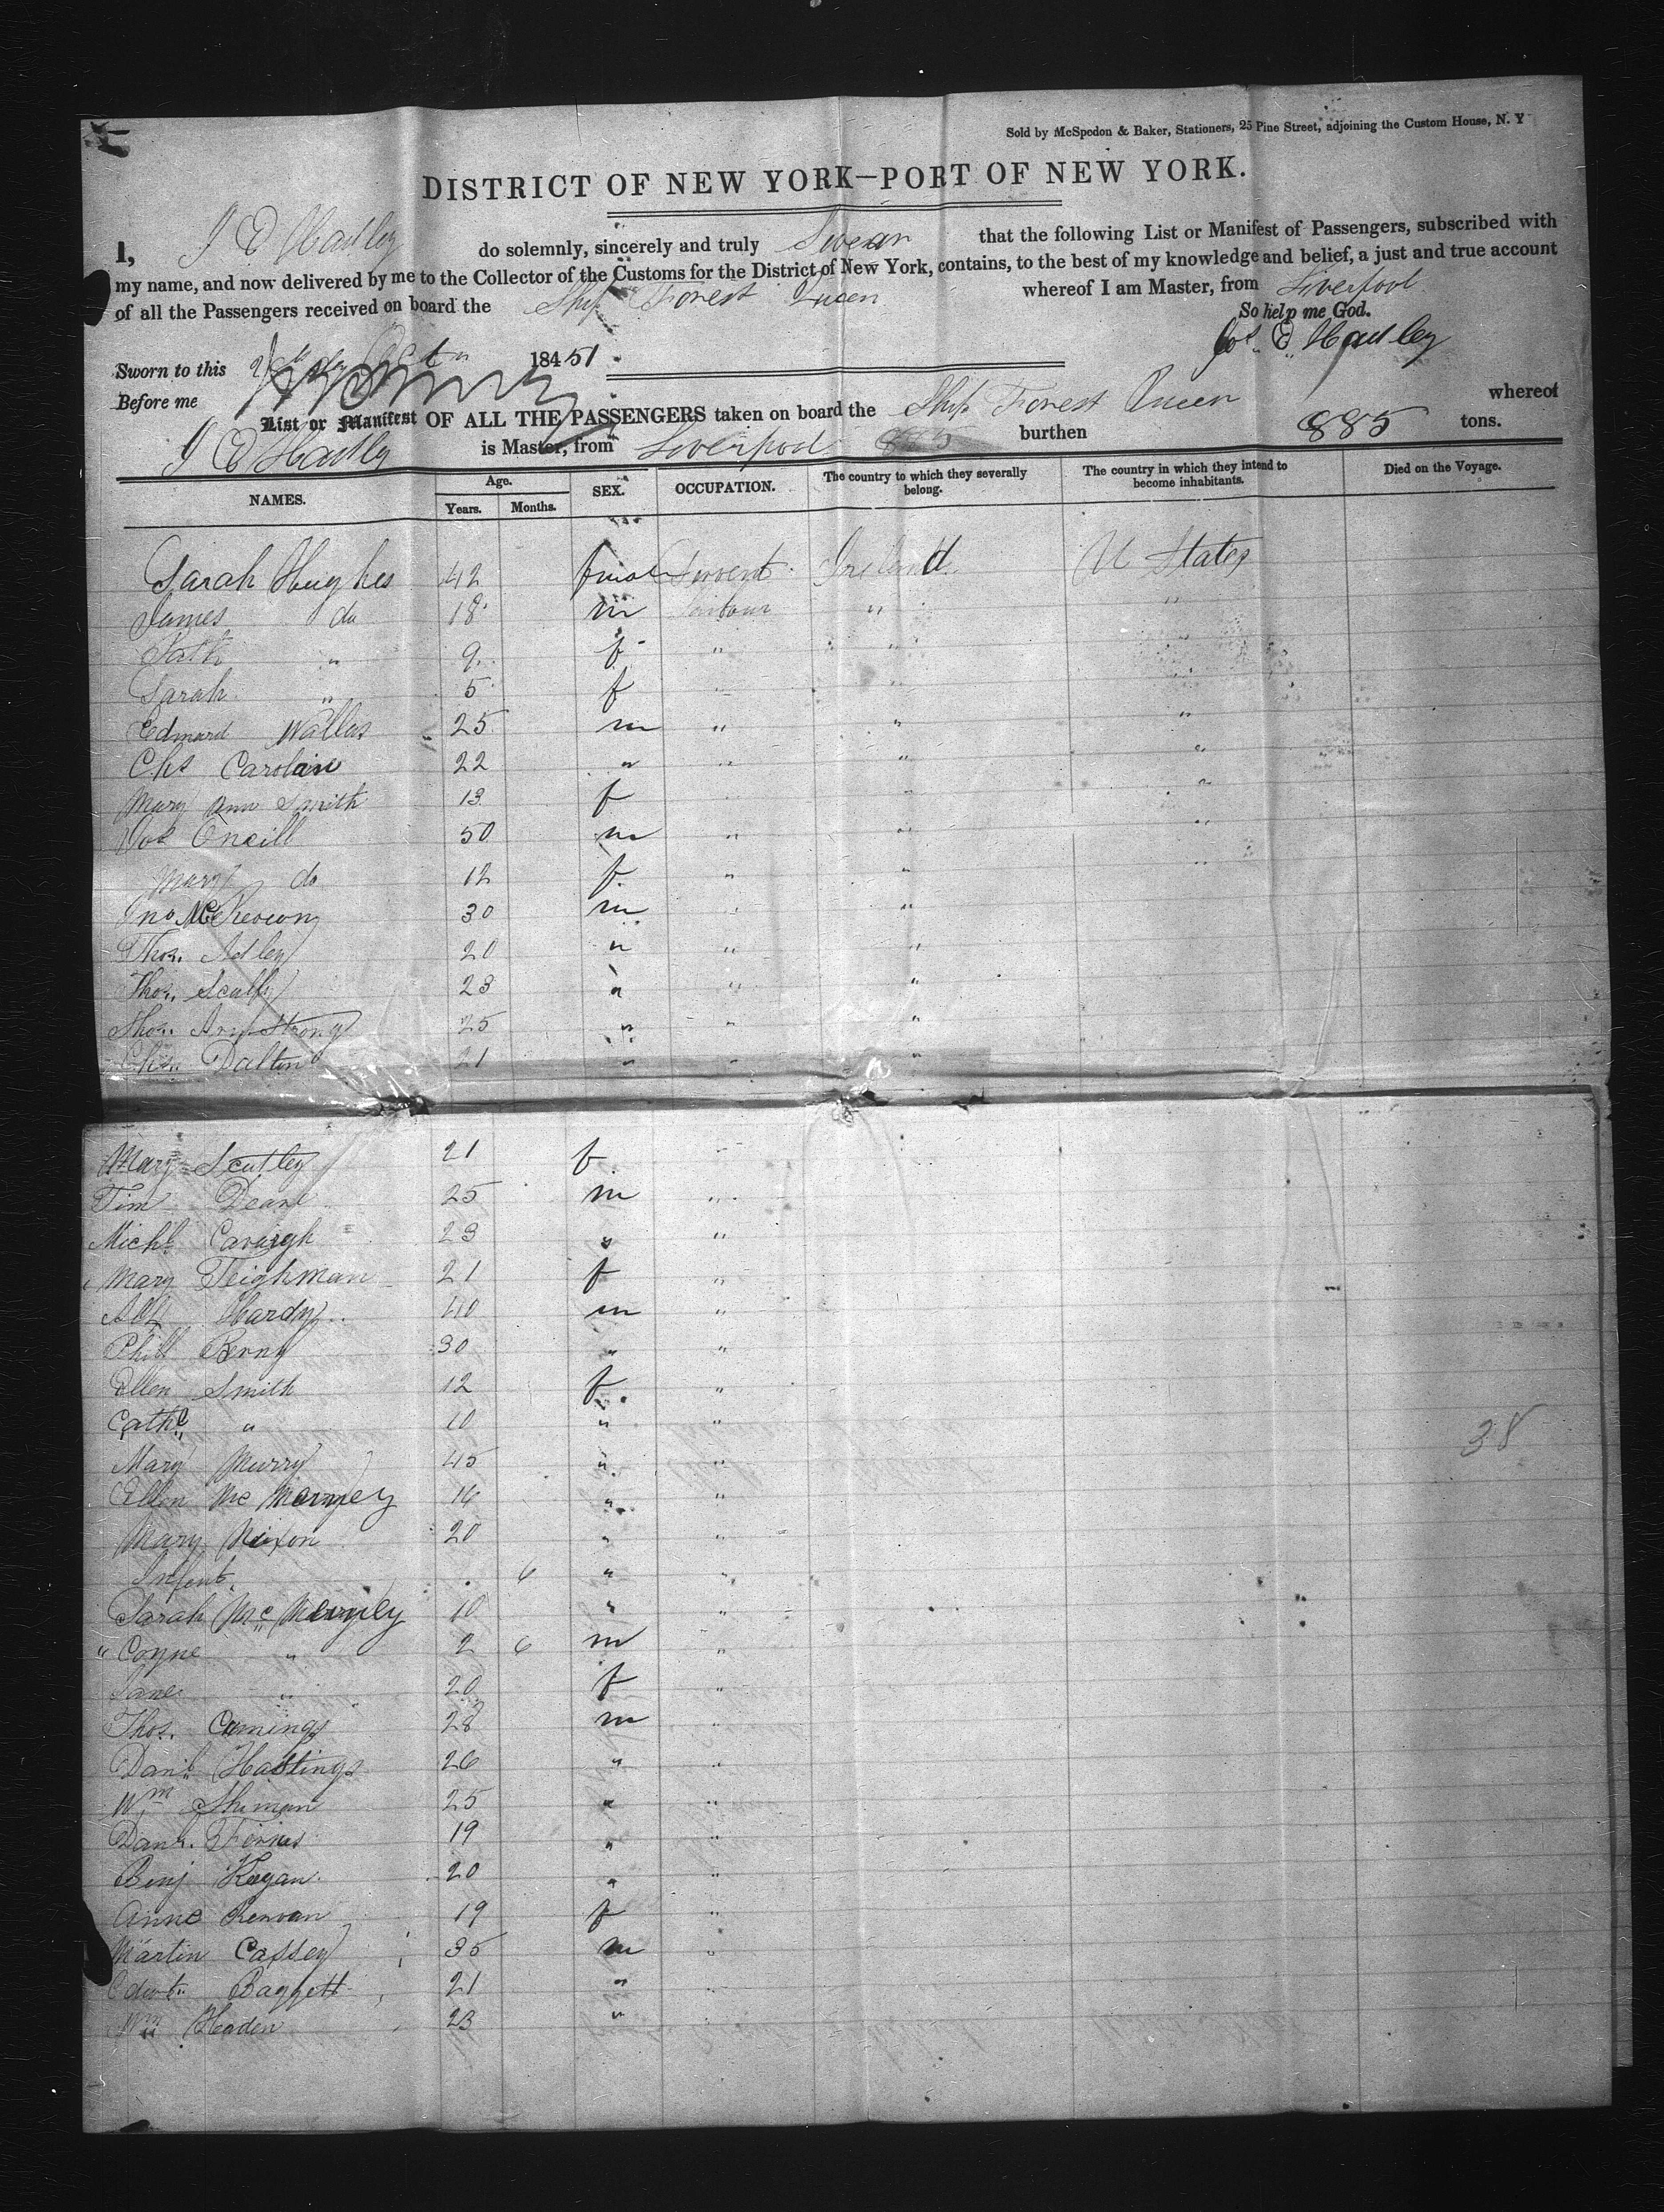 Sold by McSpedon & Baker, Stationers, 25 Pine Street, adjoining the Custom House, N. Y
DISTRICT OF NEW YORK—PORT OF NEW YORK.
I, do solemnly, sincerely and truly Swear that the following List or Manifest of Passengers, subscribed with
my name, and now delivered by me to the Collector of the Customs for the District of New York, contains, to the best of my knowledge and belief, a just and true account
of all the Passengers received on board the Ship Forest Queen whereof I am Master, from Liverpool
So help me God.
Sworn to this 18451
Before me
List or Manifest OF ALL THE PASSENGERS taken on board the Ship Forest Queen whereof
is Master, from Liverpool burthen 885 tons.
NAMES. Age. Years. Months. SEX. OCCUPATION. The country to which they severally belong. The country in which they intend to become inhabitants. Died on the Voyage.
Sarah Hughes 42 Servent Ireland U States
James do 18 m "
9 f " "
Sarah " 5 f
Edmard Wallas 25 m " " "
Chs Carolan 22 " " " "
Mary Ann Smith 13 f " "
Oneill 50 m " " "
Mary do 12 f " " "
Jno McKeown 30 m " "
Thos. Adley 20 " " "
Thos. 23 " " "
Thos. Armstrong 25 " " "
Dalton 21 " " "
Mary Scutley 21 f "
Tim Deane 25 m "
Michl Cavaigh 23 " "
Mary Teighman 21 f "
Hardy 40 m "
Phill Berny 30 " "
Ellen Smith 12 f "
Cathe " 10 " "
Mary Murry 45 " "
Ellen Mc 16 " "
Mary Nixon 20 " "
Infent 6 " "
Sarah Mc 10 " "
" Coyne " 2 6 m "
Jane " 20 f "
Thos. Cumings 28 m "
Danl Hastings 26 " "
Wm Shiman 25 " "
Danl. Ferris 19 " "
Benj Keegan 20 " "
Anne Kerwan 19 f "
Martin Cassey 35 m "
Edwd Baggett 21 "
Wm Headen 23 "
38